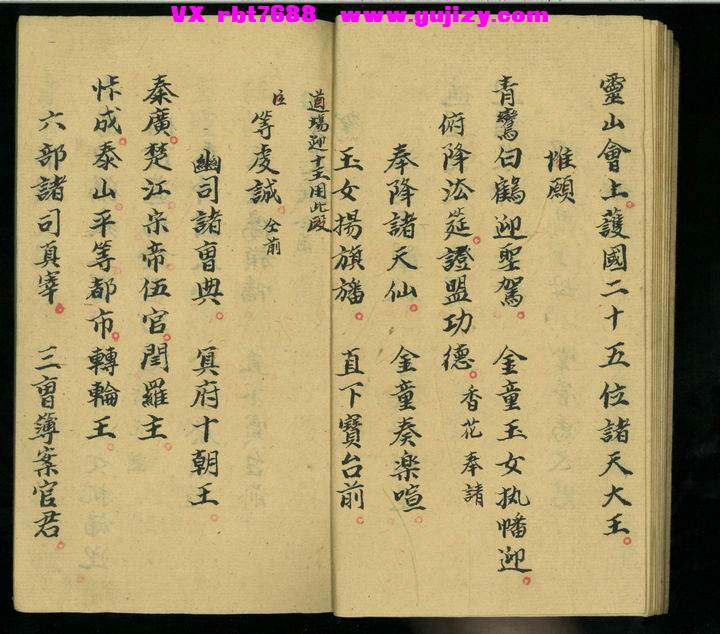 VX rbt7688 www.gujizy.com
靈山會上護國二十五位諸天大王
惟願
青鸞白鶴迎聖駕 金童玉女执幡迎
俯降法莚證盟功德 香花奉請
奉降諸天仙 金童奏楽喧
玉女揚旗旙 直下寶台前
道場迎十王用此段
臣等虔誠 仝前
幽司諸曺典 冥府十朝王
秦廣楚江宋帝伍官閆羅主
悐成泰山平等都市轉輪王
六部諸司真宰 三曺簿案官君